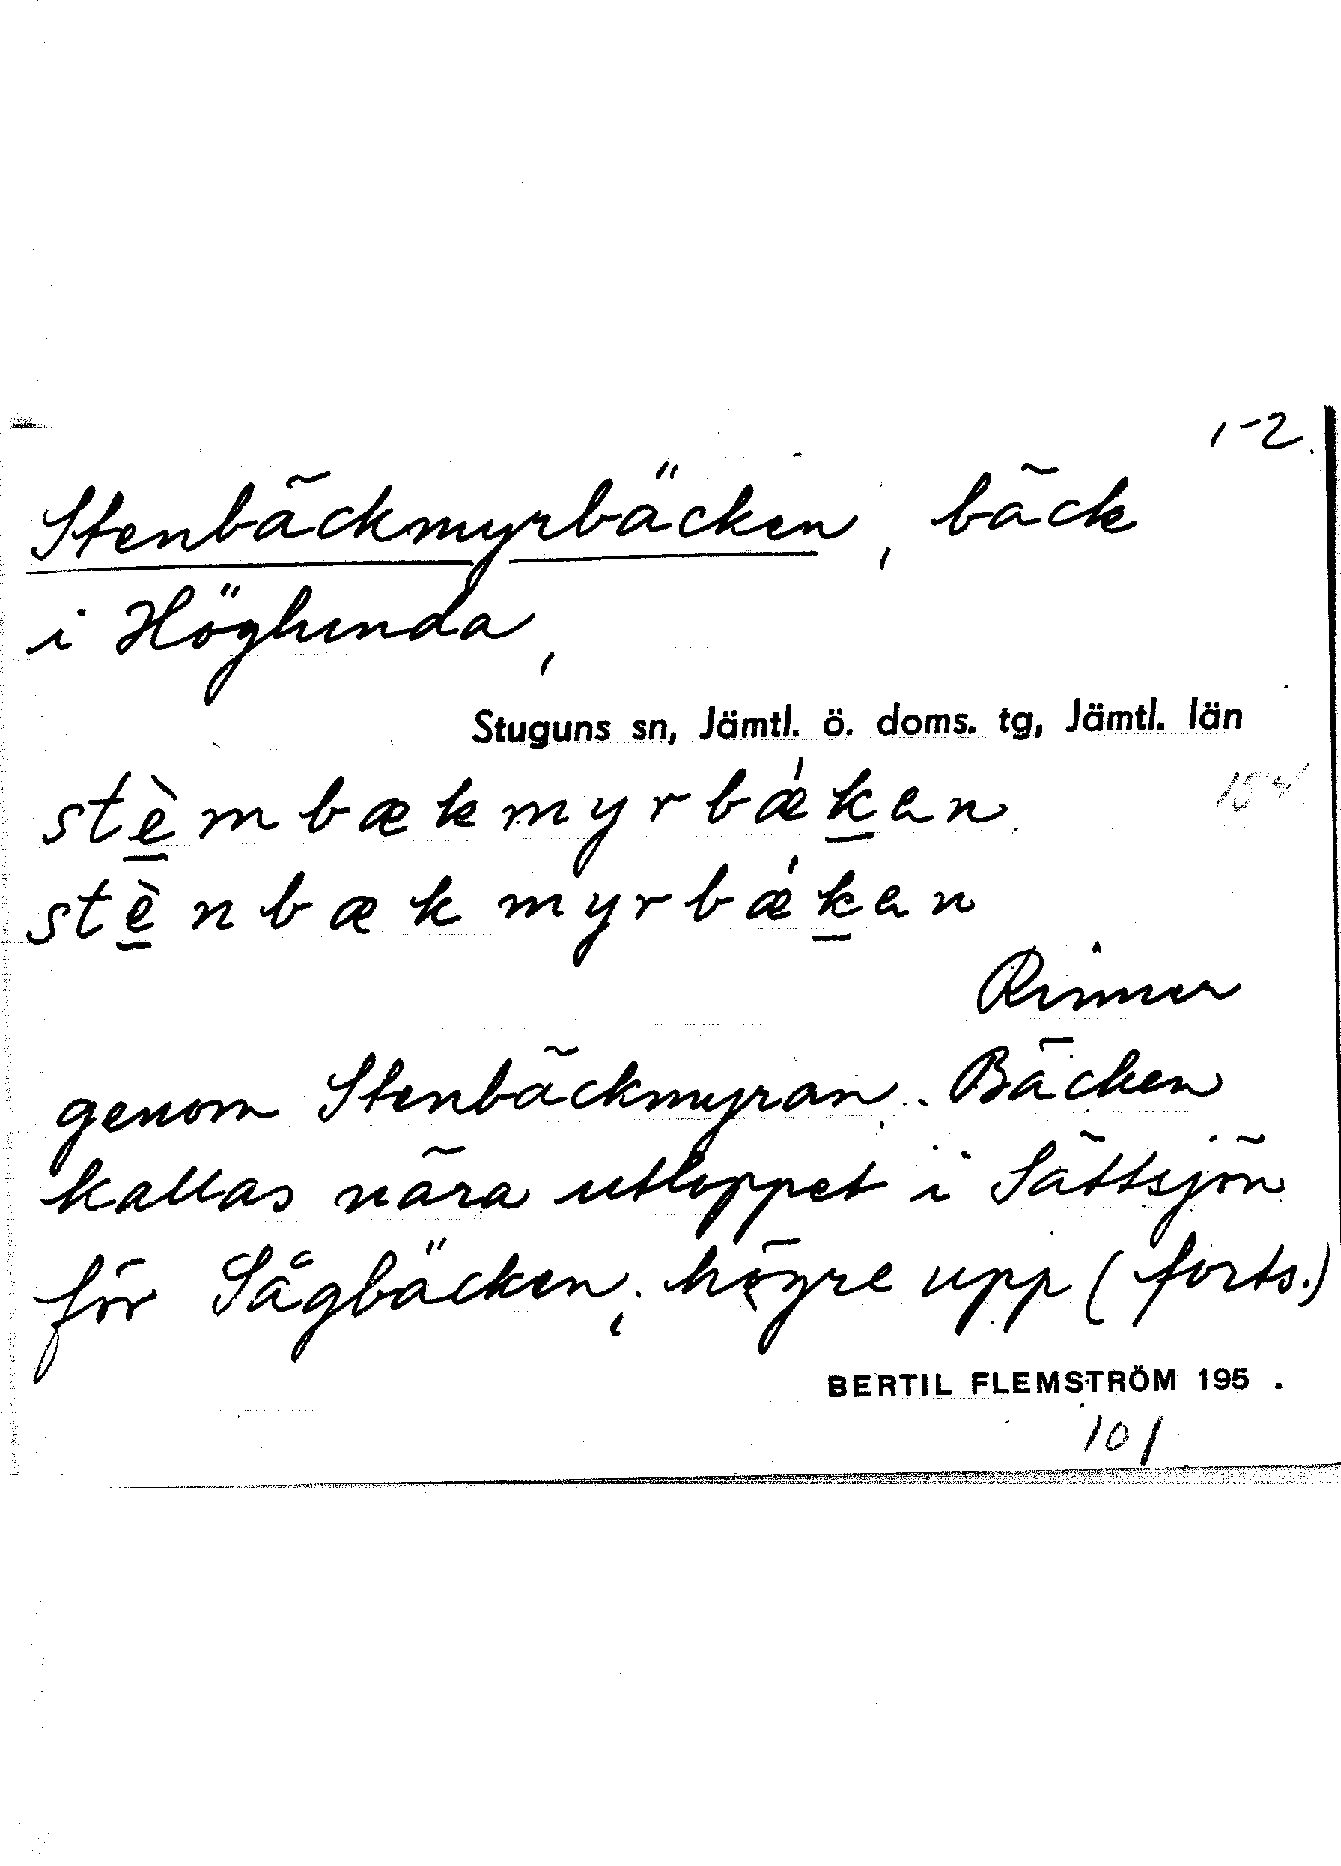 1-2.
Stenbäckmyrbäcken, bäck
i Höglunda,
Stuguns sn, Jämtl. ö. doms. tg, Jämtl. län
stè̠mbækmyrbǽk̠en
stè̠nbækmyrbǽk̠en
Rinner
genom Stenbäckmyran. Bäcken
kallas nära utloppet i Sättsjön
för Sågbäcken, högre upp (forts.)
BERTIL FLEMSTRÖM 195 .
101